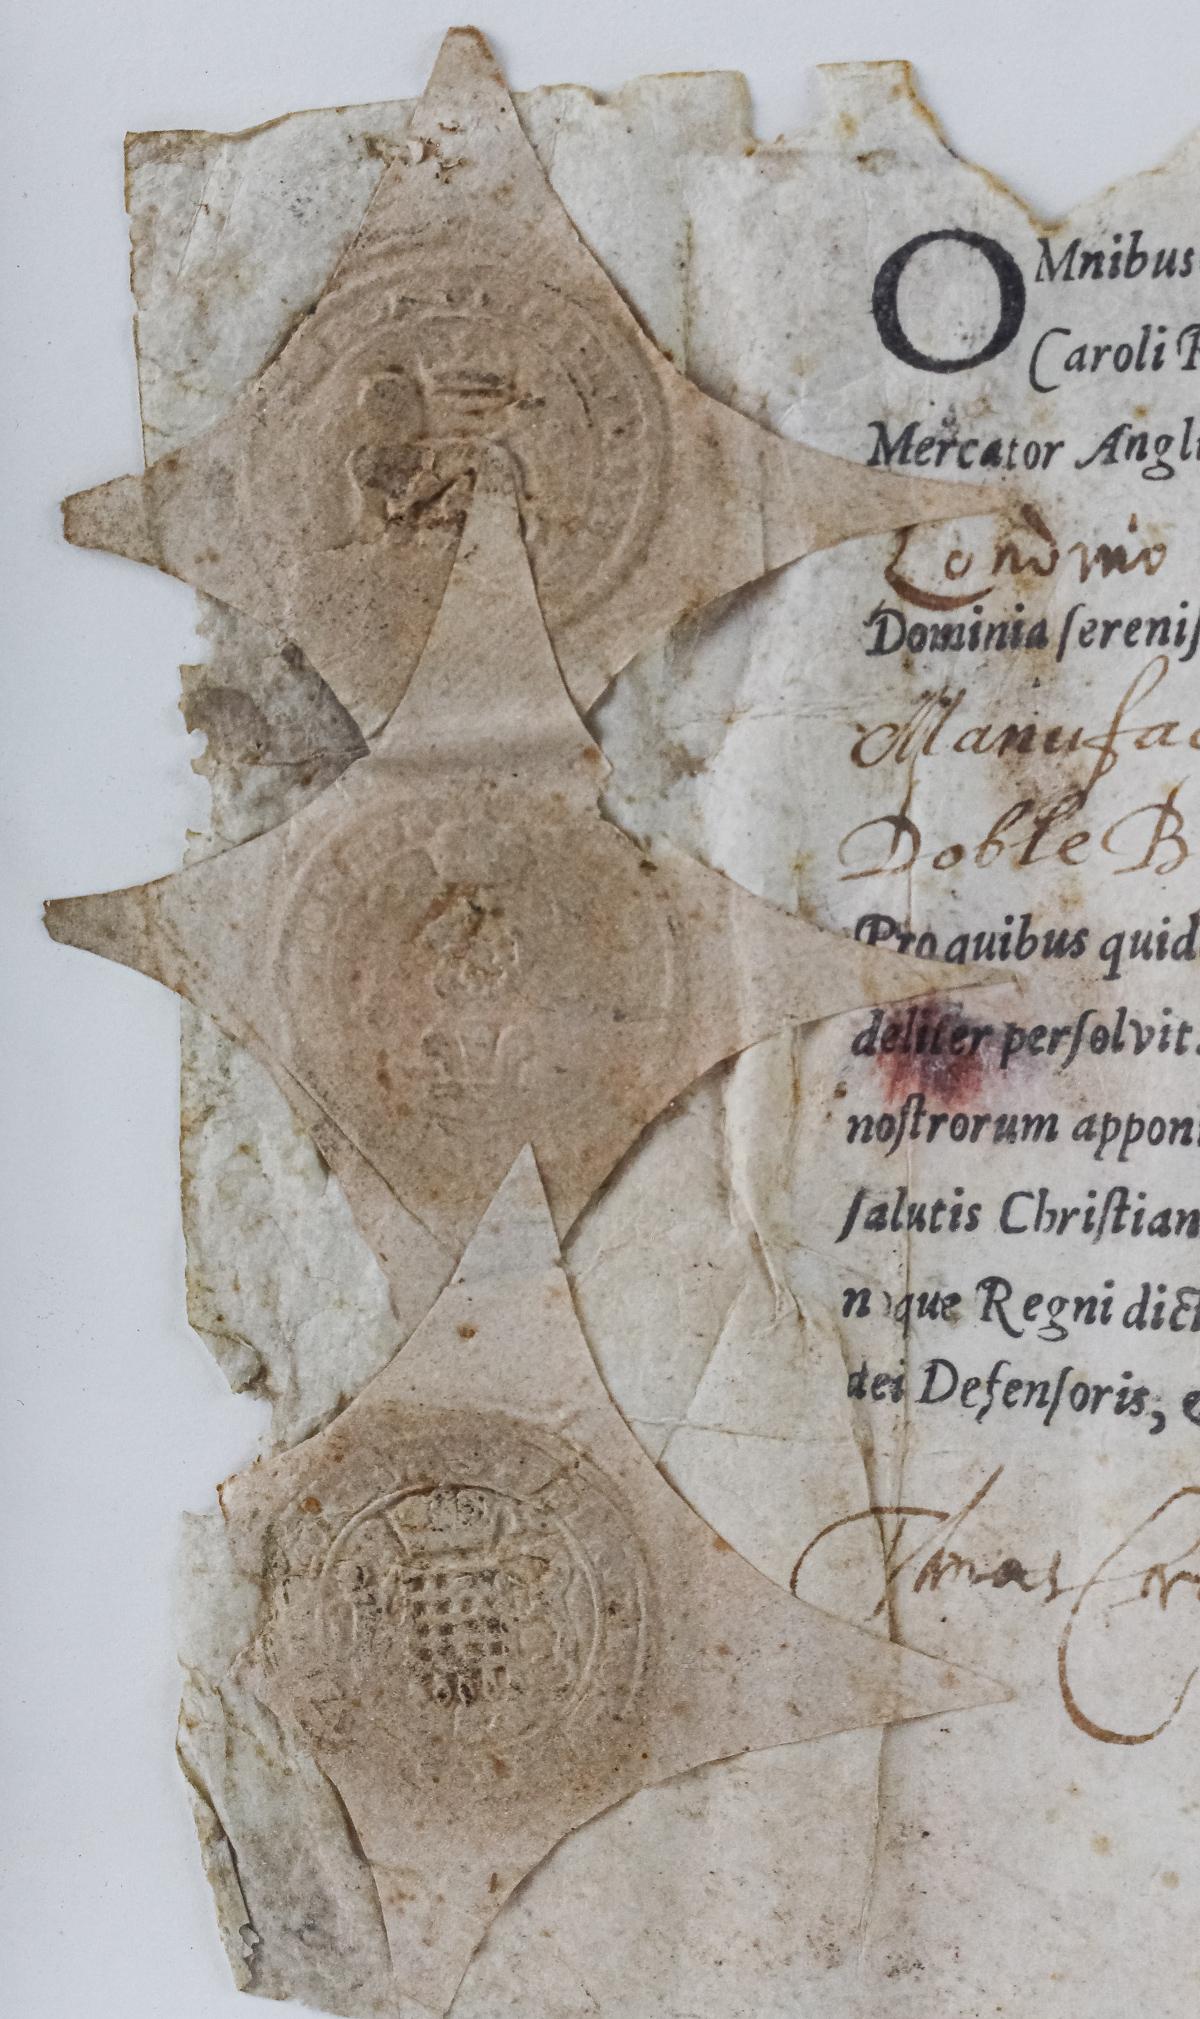 OMnibus
Caroli
Mercator Angli
Londinio
Dominia ſereniſ
Manufac
Doble B
Pro quibus quid
deliter perſolvit.
noſtrorum apponi
ſalutis Chriſtian
n que Regni dict
dei Defenſoris,
Thomas